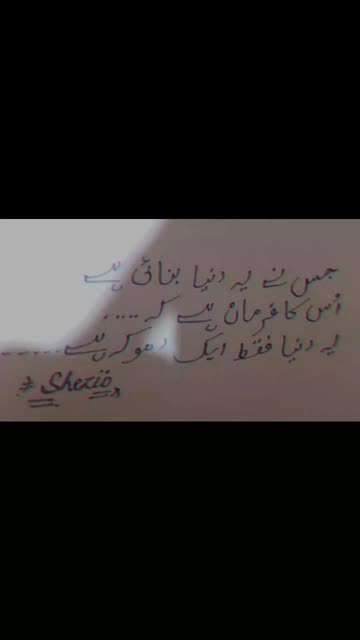 جس نے یہ دنیا بنائی ہے
اُس کا فرمان ہے کہ....
یہ دنیا فقط ایک دھوکہ ہے......
Shezio